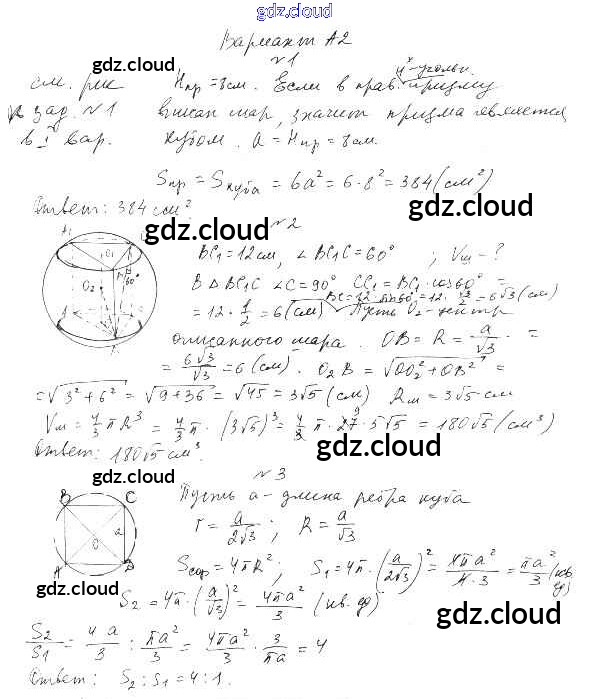 gdz.cloud
Вариант А2
gdz.cloud
№1
см. рис Hпр = 8см. Если в прав. 4х-угольн. призму
к зад. №1 вписан шар, значит призма является
в I вар. кубом. a = Hпр = 8 см.
gdz.cloud
Sпр = Sкуба = 6a² = 6·8² = 384 (см²)
Ответ: 384 см².
gdz.cloud
№2
BC₁ = 12 см, ∠BC₁C = 60° ; Vш - ?
В ΔBC₁C ∠C = 90° CC₁ = BC₁·cos60° =
= 12·1/2 = 6 (см) BC = 12 sin60° = 12·√3/2 = 6√3 (см) Пусть O₂ - центр
описанного шара. OB = R = a/√3 =
= 6√3/√3 = 6 (см). O₂B = √OO₂² + OB² =
gdz.cloud
= √3² + 6² = √9 + 36 = √45 = 3√5 (см) Rш = 3√5 см
Vш = 4/3 πR³ = 4/3 π · (3√5)³ = 4/3 π · 27 · 5√5 = 180√5 (см³)
Ответ: 180√5 см³.
gdz.cloud
№3
gdz.cloud
B C Пусть a - длина ребра куба
r = a/2√3 ; R = a/√3
a
O
A D
Sсф = 4πR² ; S₁ = 4π · (a/2√3)² = 4πa²/4·3 = πa²/3 (кв. ед)
gdz.cloud
S₂ = 4π · (a/√3)² = 4πa²/3 (кв. ед)
gdz.cloud
S₂/S₁ = 4a/3 : πa²/3 = 4πa²/3 · 3/πa = 4
Ответ: S₂ : S₁ = 4 : 1.
gdz.cloud